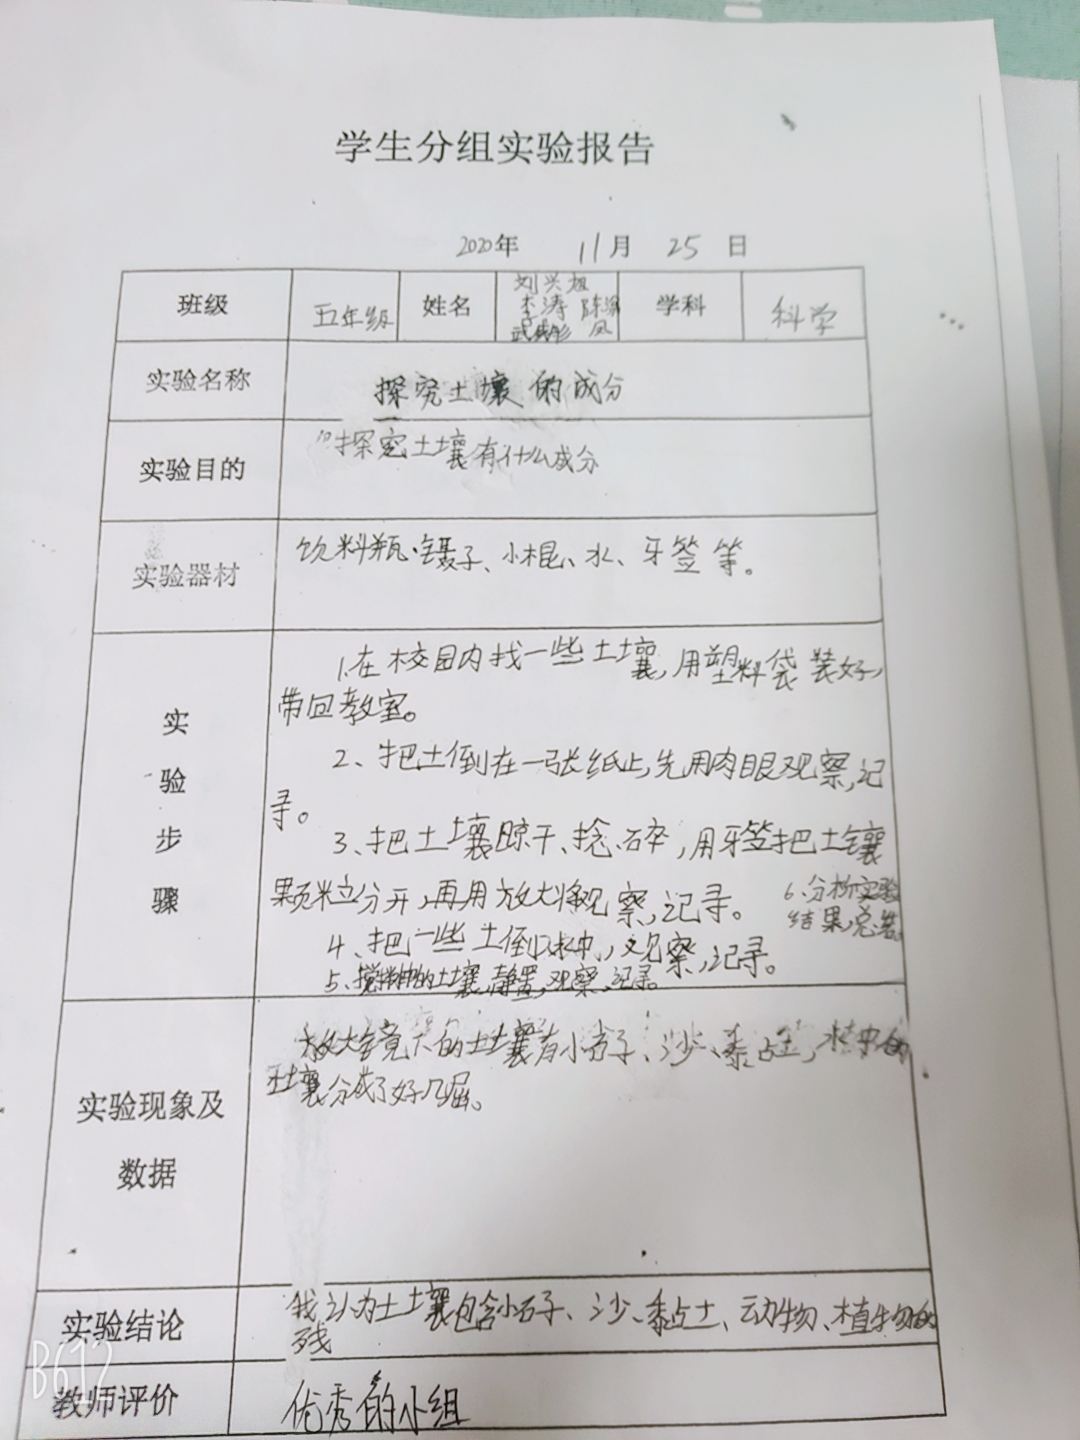 学生分组实验报告
2020年 11月 25日
班级 五年级 姓名 刘兴旭 李涛 陈 凤 武 彤 学科 科学
实验名称 探究土壤的成分
实验目的 探究土壤有什么成分
实验器材 饮料瓶、镊子、小棍、水、牙签等。
实验步骤
1.在校园内找一些土壤,用塑料袋装好,
带回教室。
2、把土倒在一张纸上,先用肉眼观察,记
录。
3、把土壤晾干、捻碎,用牙签把土壤
颗粒分开,再用放大 观察,记录。
4、把一些土倒 水中,观察,记录。
5、搅拌 的土壤,静置,观察,记录。
6、分析实验
结果,总结。
实验现象及数据
放大镜下的土壤有小石子、沙、黏土,水中的
土壤分成了好几层。
实验结论
我认为土壤包含小石子、沙、黏土、动物、植物的
残
教师评价 优秀的小组
B612